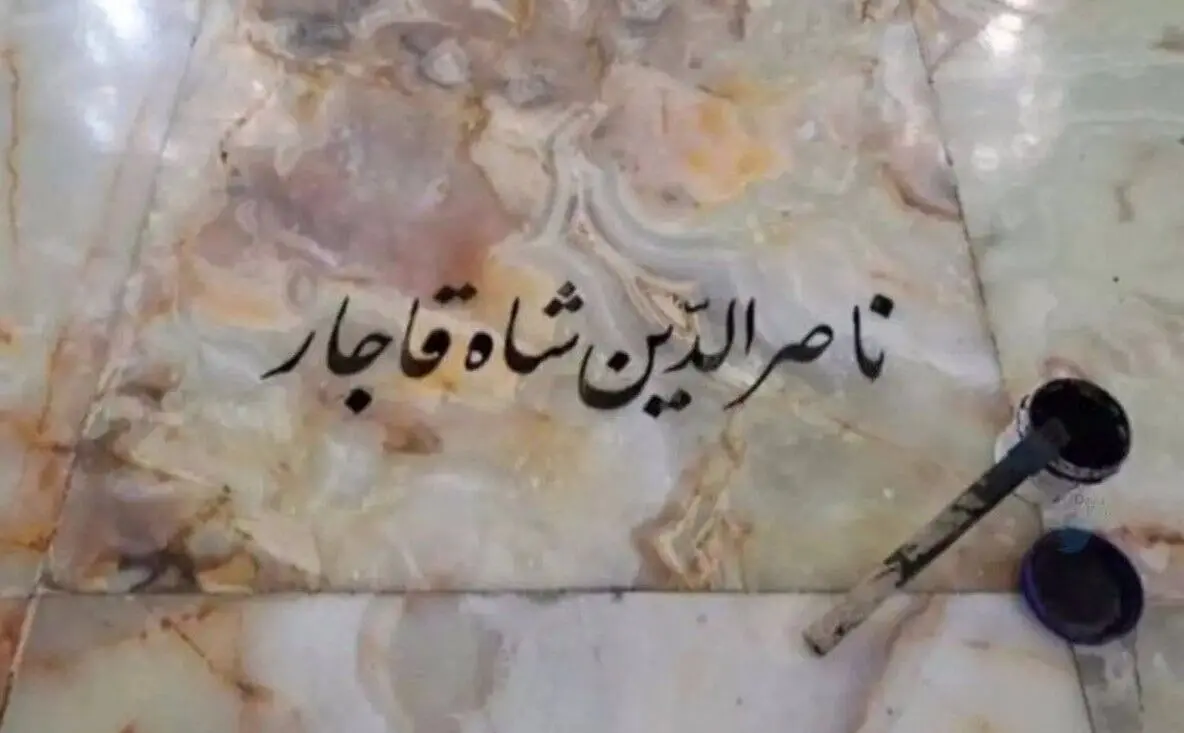 ناصرالدّین شاه قاجار